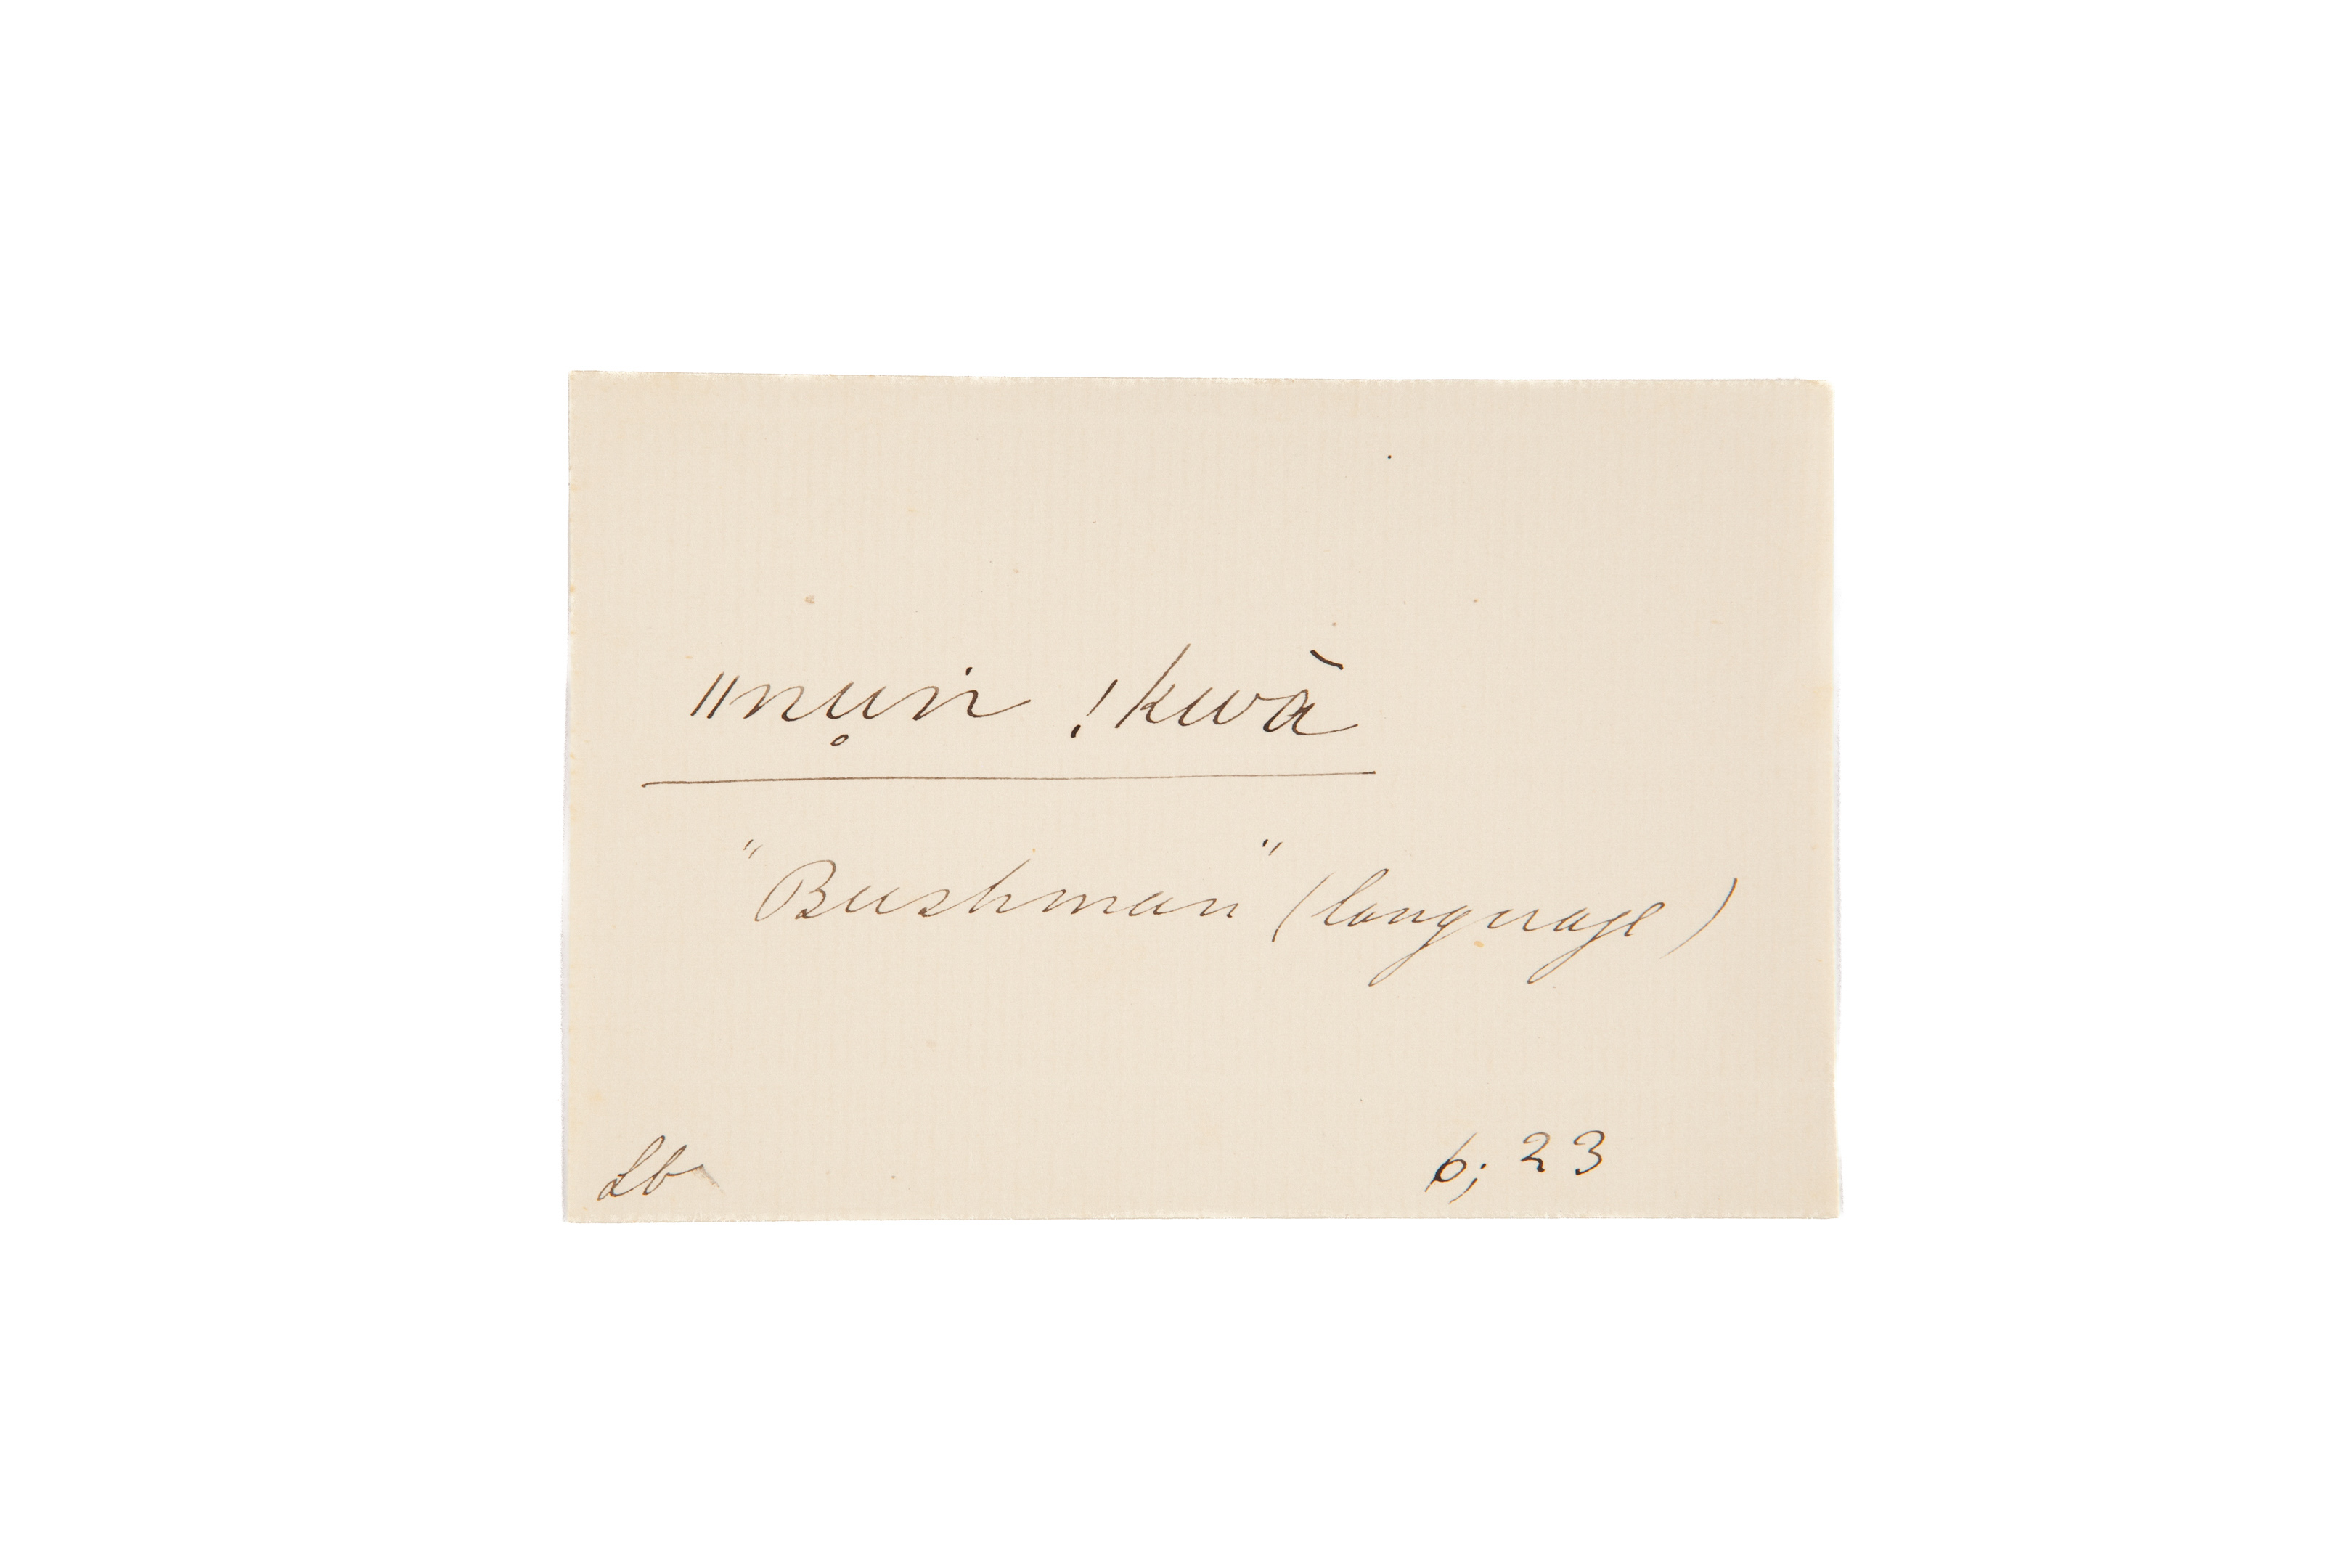 ǁnu̥ṅ !kwā
"Bushman" (language)
Lb 6; 23